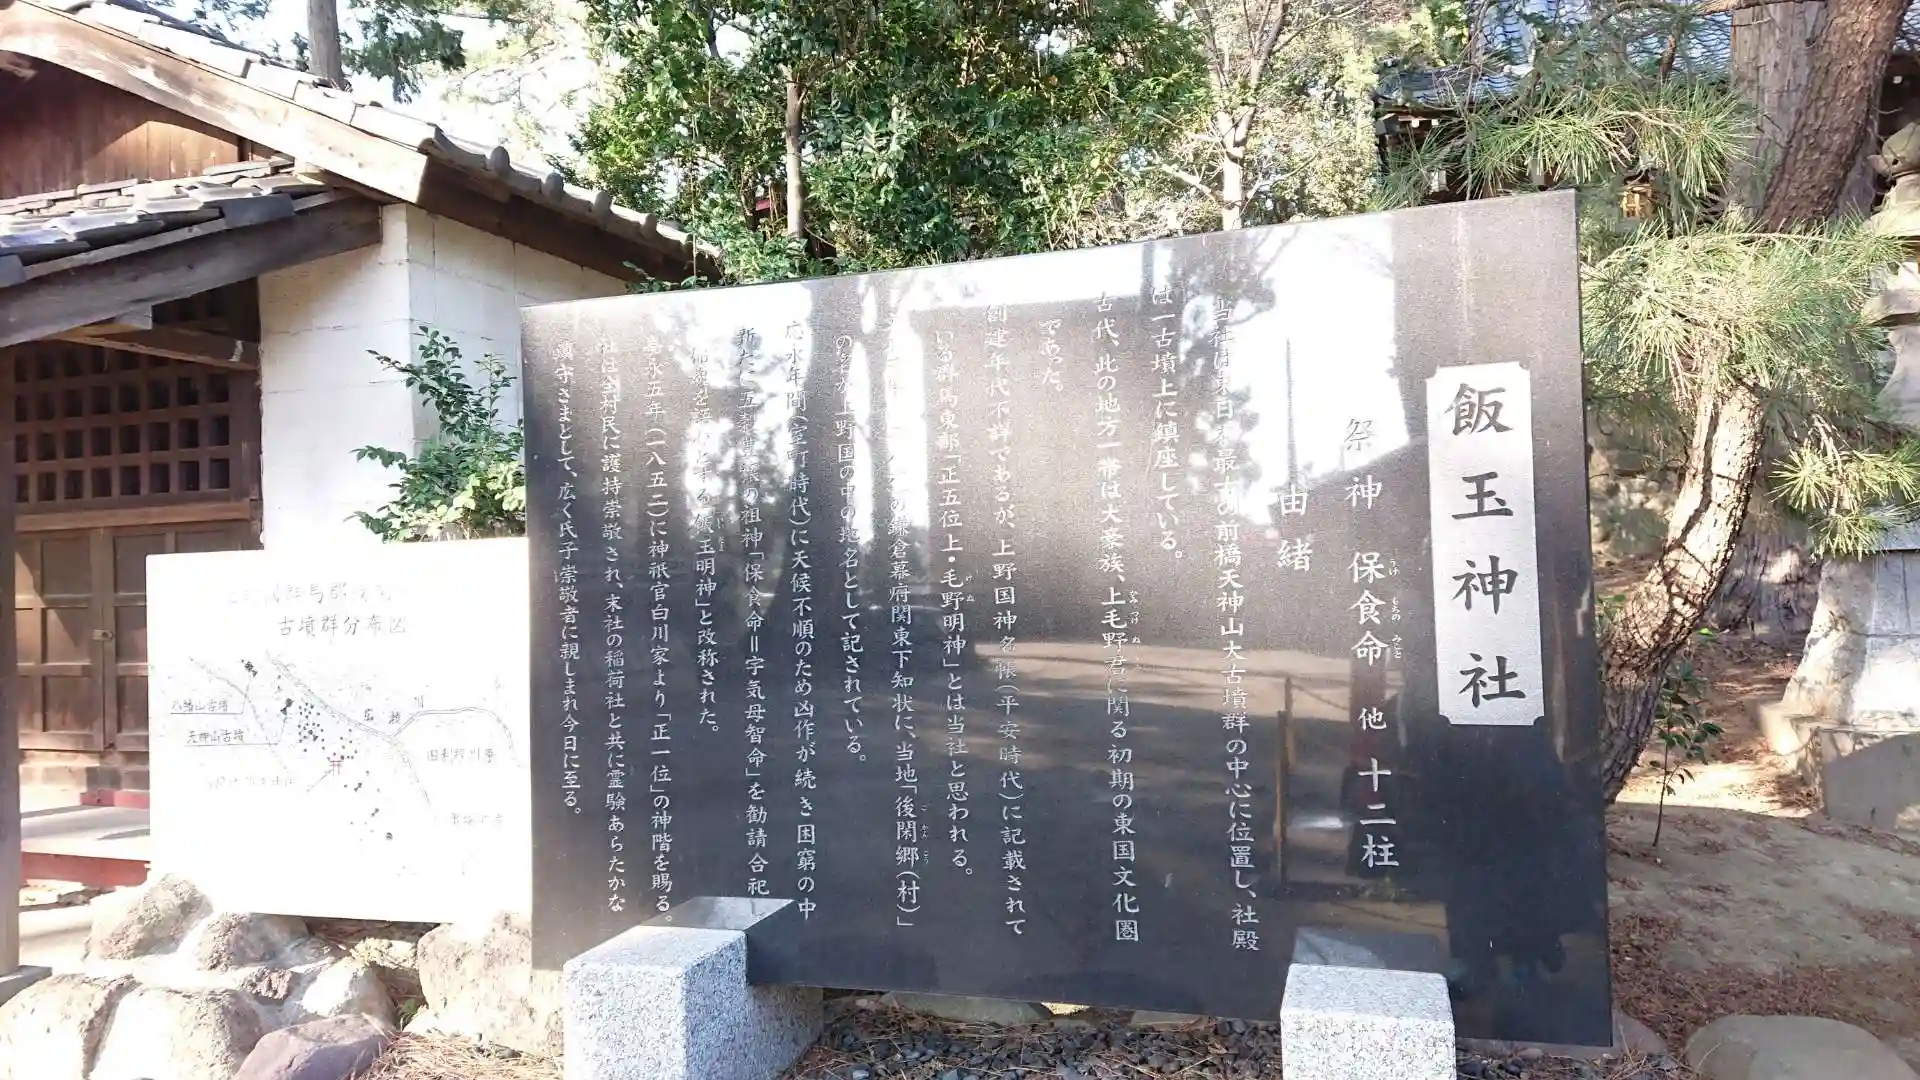 飯玉神社
祭神 保食命 他十二柱
うけ もちの みこと
由緒
当社は東日本最古の前橋天神山大古墳群の中心に位置し、社殿
は一古墳上に鎮座している。
古代、此の地方一帯は大豪族、上毛野君に関る初期の東国文化圏
であった。
創建年代不詳であるが、上野国神名帳(平安時代)に記載されて
いる群馬東郡「正五位上・毛野明神」とは当社と思われる。
の鎌倉幕府関東下知状に、当地「後閑郷(村)」
の名が上野国の中の地名として記されている。
応永年間(室町時代)に天候不順のため凶作が続き困窮の中
新たに五穀豊穣の祖神「保食命=宇気母智命」を勧請合祀
玉明神」と改称された。
嘉永五年(一八五二)に神祇官白川家より「正一位」の神階を賜る。
社は全村民に護持崇敬され、末社の稲荷社と共に霊験あらたかな
鎮守さまとして、広く氏子崇敬者に親しまれ今日に至る。
古墳群分布図
八幡山古墳
天神山古墳
広瀬川
旧利根川